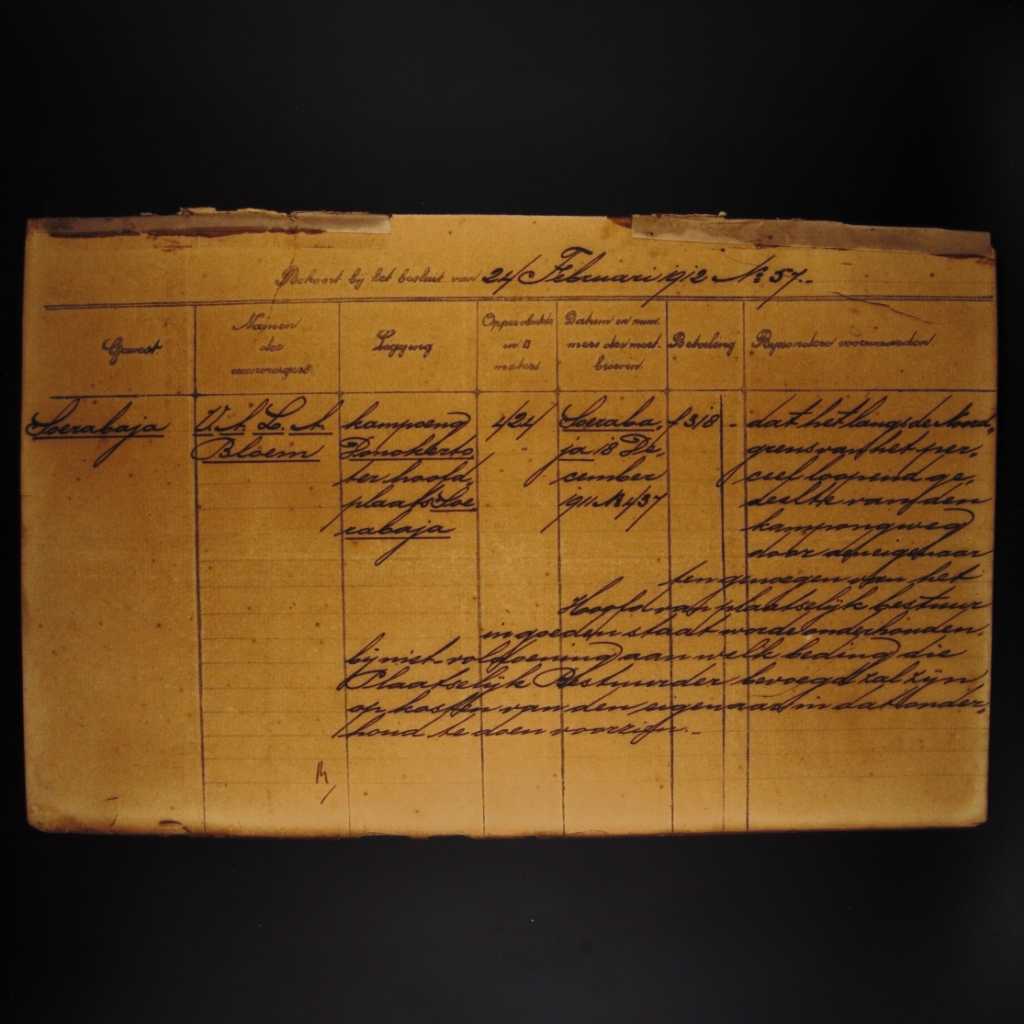 Behoort bij het besluit van 24 Februari 1912 No 57.-
Gewest
Namen
der
Ligging
Oppervlakte
in □
meters
Datum en num-
mers der meet-
brieven
Betaling
Bijzondere voorwaarden
Soerabaja
V. A. L. A.
Bloem
kampoeng
Donokerto
ter hoofd-
plaats Soe
rabaja
424
Soeraba-
ja 18 De-
cember
1911 No 437
f 318 -
dat het langs de Noord-
grens van het per-
ceel loopend ge-
deelte van den
kampongweg
door den eigenaar
ten genoegen van het
Hoofd van plaatselijk bestuur
in goeden staat worde onderhouden,
bij niet voldoening aan welk beding die
Plaatselijk Bestuurder bevoegd zal zijn
op kosten van den eigenaar in dat onder-
houd te doen voorzien.-